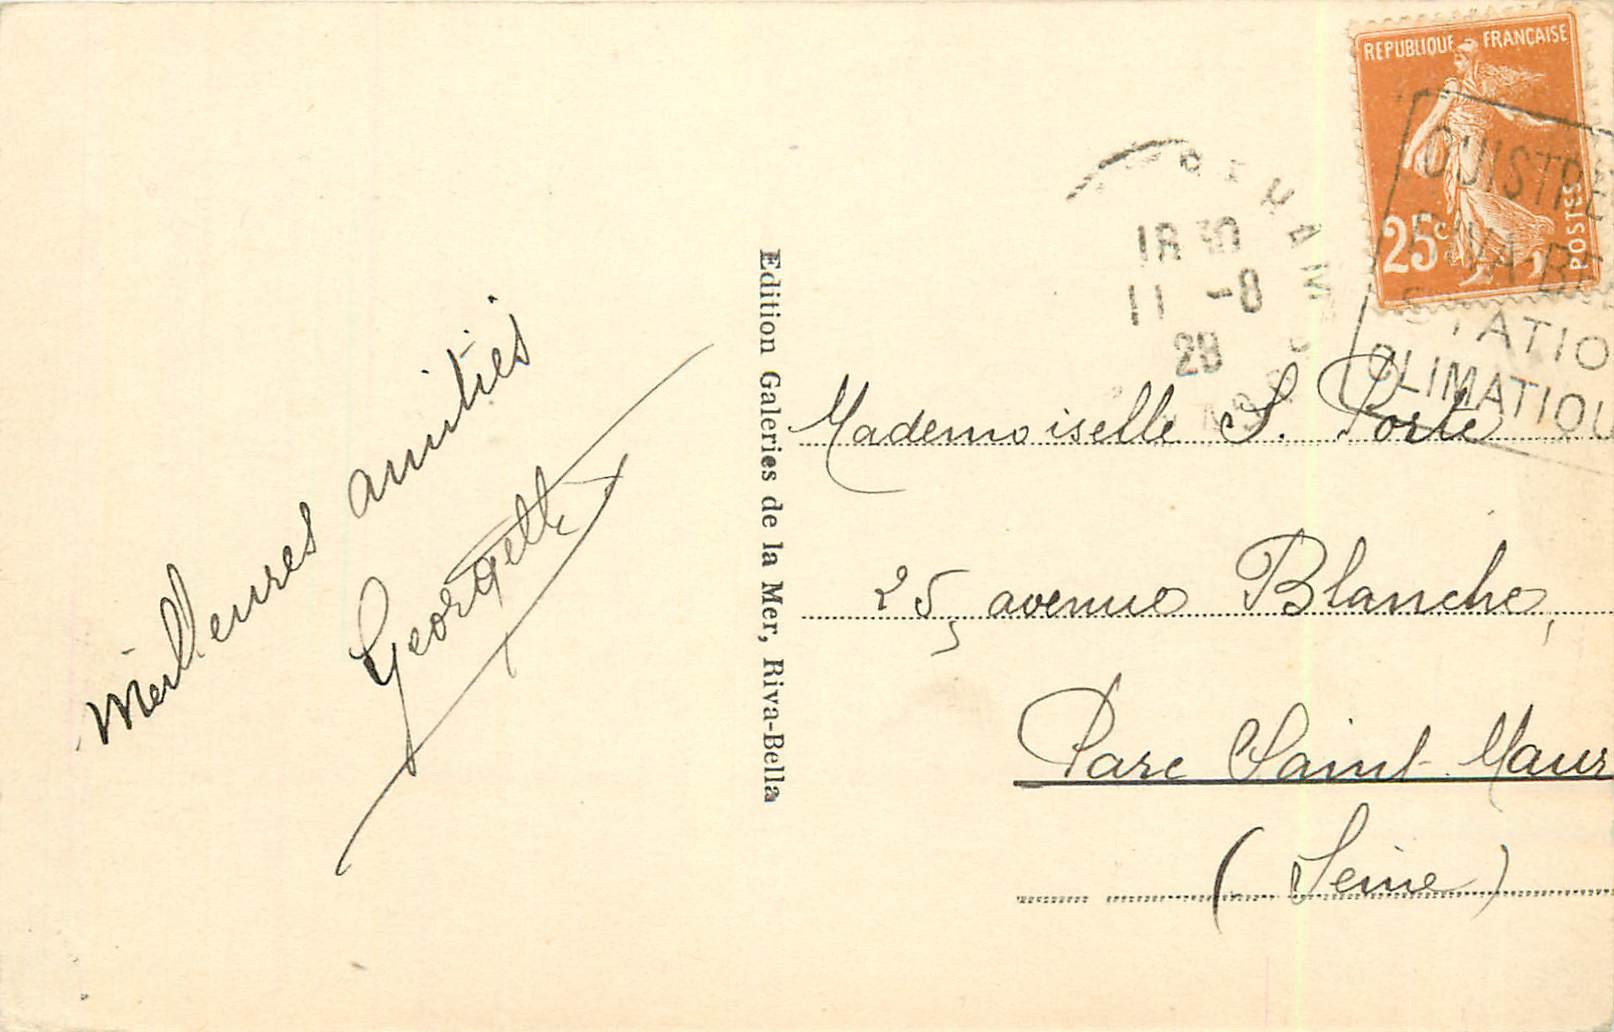 Meilleures amitiés
Georgette
Edition Galeries de la Mer, Riva-Bella
REPUBLIQUE FRANÇAISE
25c
POSTES
18 30
11 -8
28
OUISTRE
RIVA-BE
STATIO
CLIMATIQU
Mademoiselle S. Porte
25, avenue Blanche,
Parc Saint-Maur
(Seine)